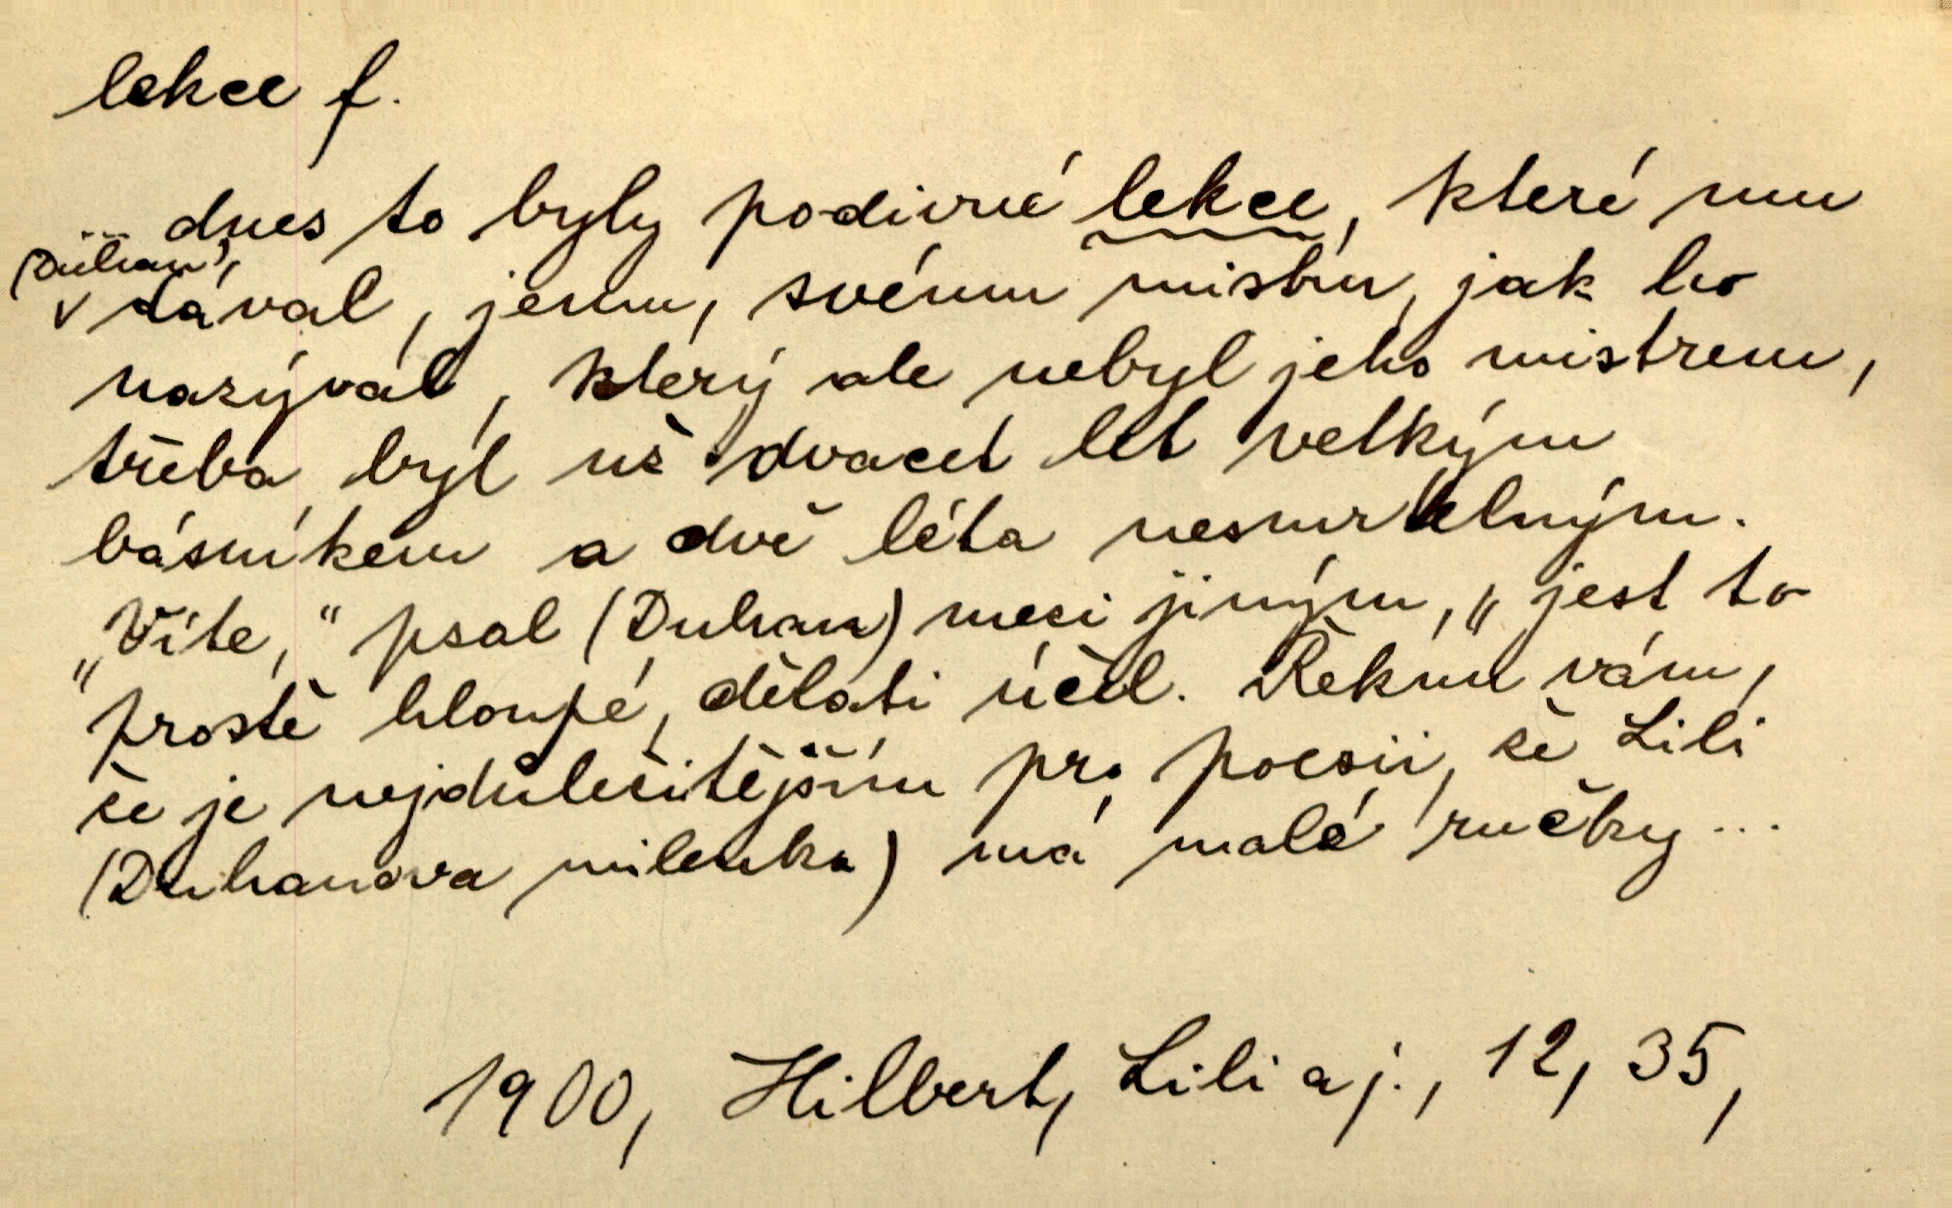 lekce f.
... dnes to byly podivné lekce, které mu
(Duhan)
v dával, jemu, svému mistru, jak ho
nazýval, který ale nebyl jeho mistrem,
třeba byl už dvacet let velkým
básníkem a dvě léta nesmrtelným.
„Víte,“ psal (Duhan) mezi jiným, „jest to
prostě hloupé, dělati účel. Řeknu vám,
že je nejdůležitějším pro poesii, že Lili
(Duhanova milenka) má malé ručky ...
1900, Hilbert, Lili a j., 12, 35,